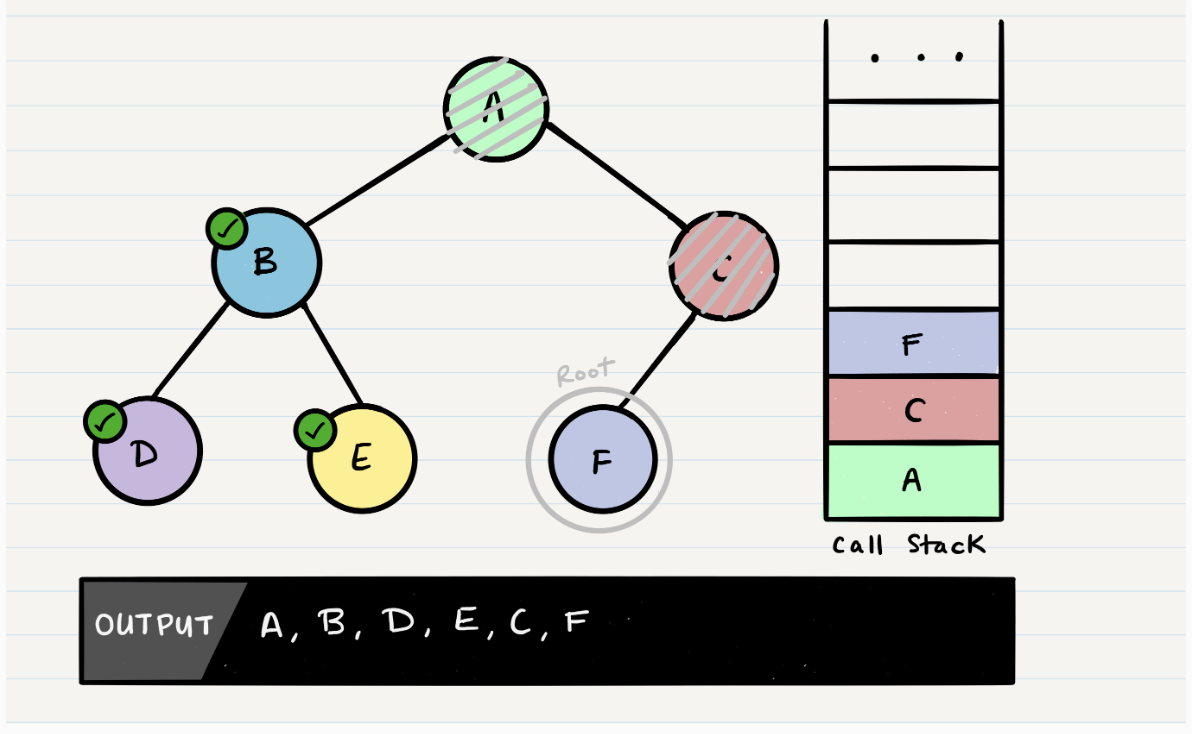 A
B
C
D
E
Root
F
. . .
F
C
A
Call Stack
OUTPUT A, B, D, E, C, F